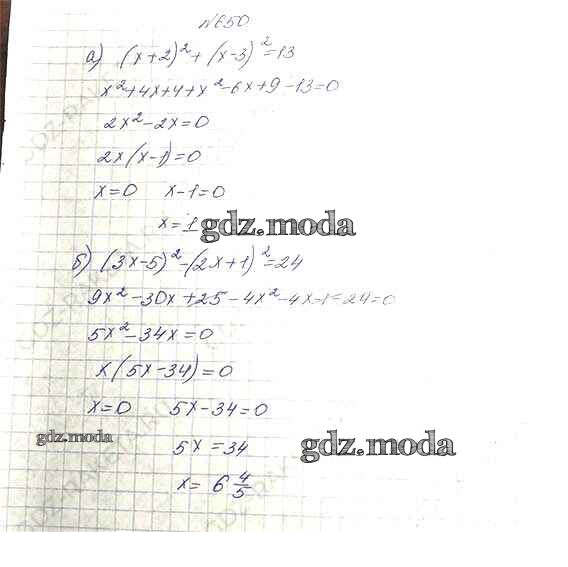 №650
а) (x+2)²+(x-3)²=13
x²+4x+4+x²-6x+9-13=0
2x²-2x=0
2x(x-1)=0
x=0 x-1=0
x=1
gdz.moda
б) (3x-5)²-(2x+1)²=24
9x²-30x+25-4x²-4x-1-24=0
5x²-34x=0
x(5x-34)=0
x=0 5x-34=0
gdz.moda
5x=34
gdz.moda
x= 6 4/5